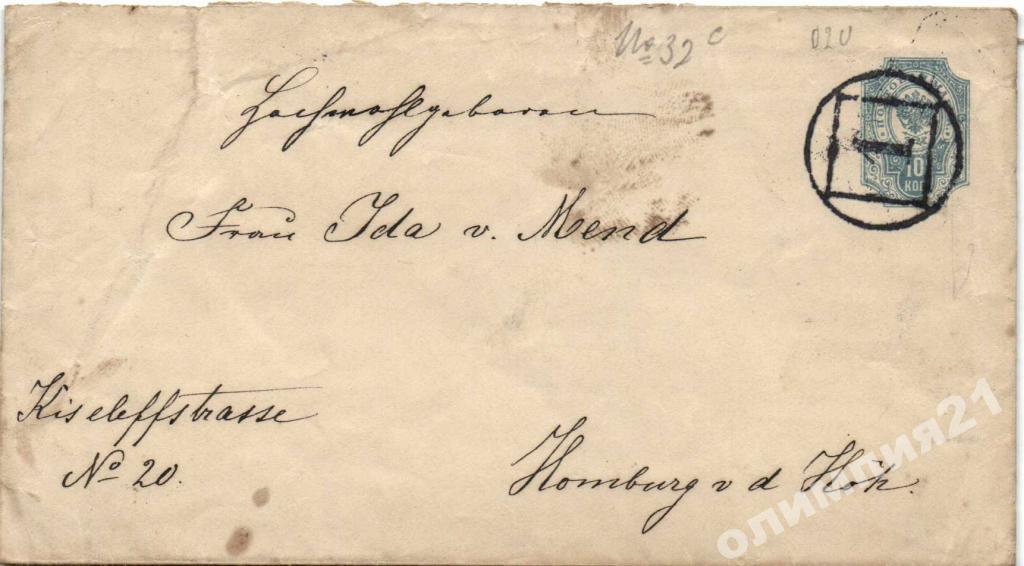 No 32 c
020
Hochwohlgeboren
Frau Ida v. Mend
Kiseleffstrasse
No 20.
Homburg v d Höh.
1
10
КОП
олимпия21